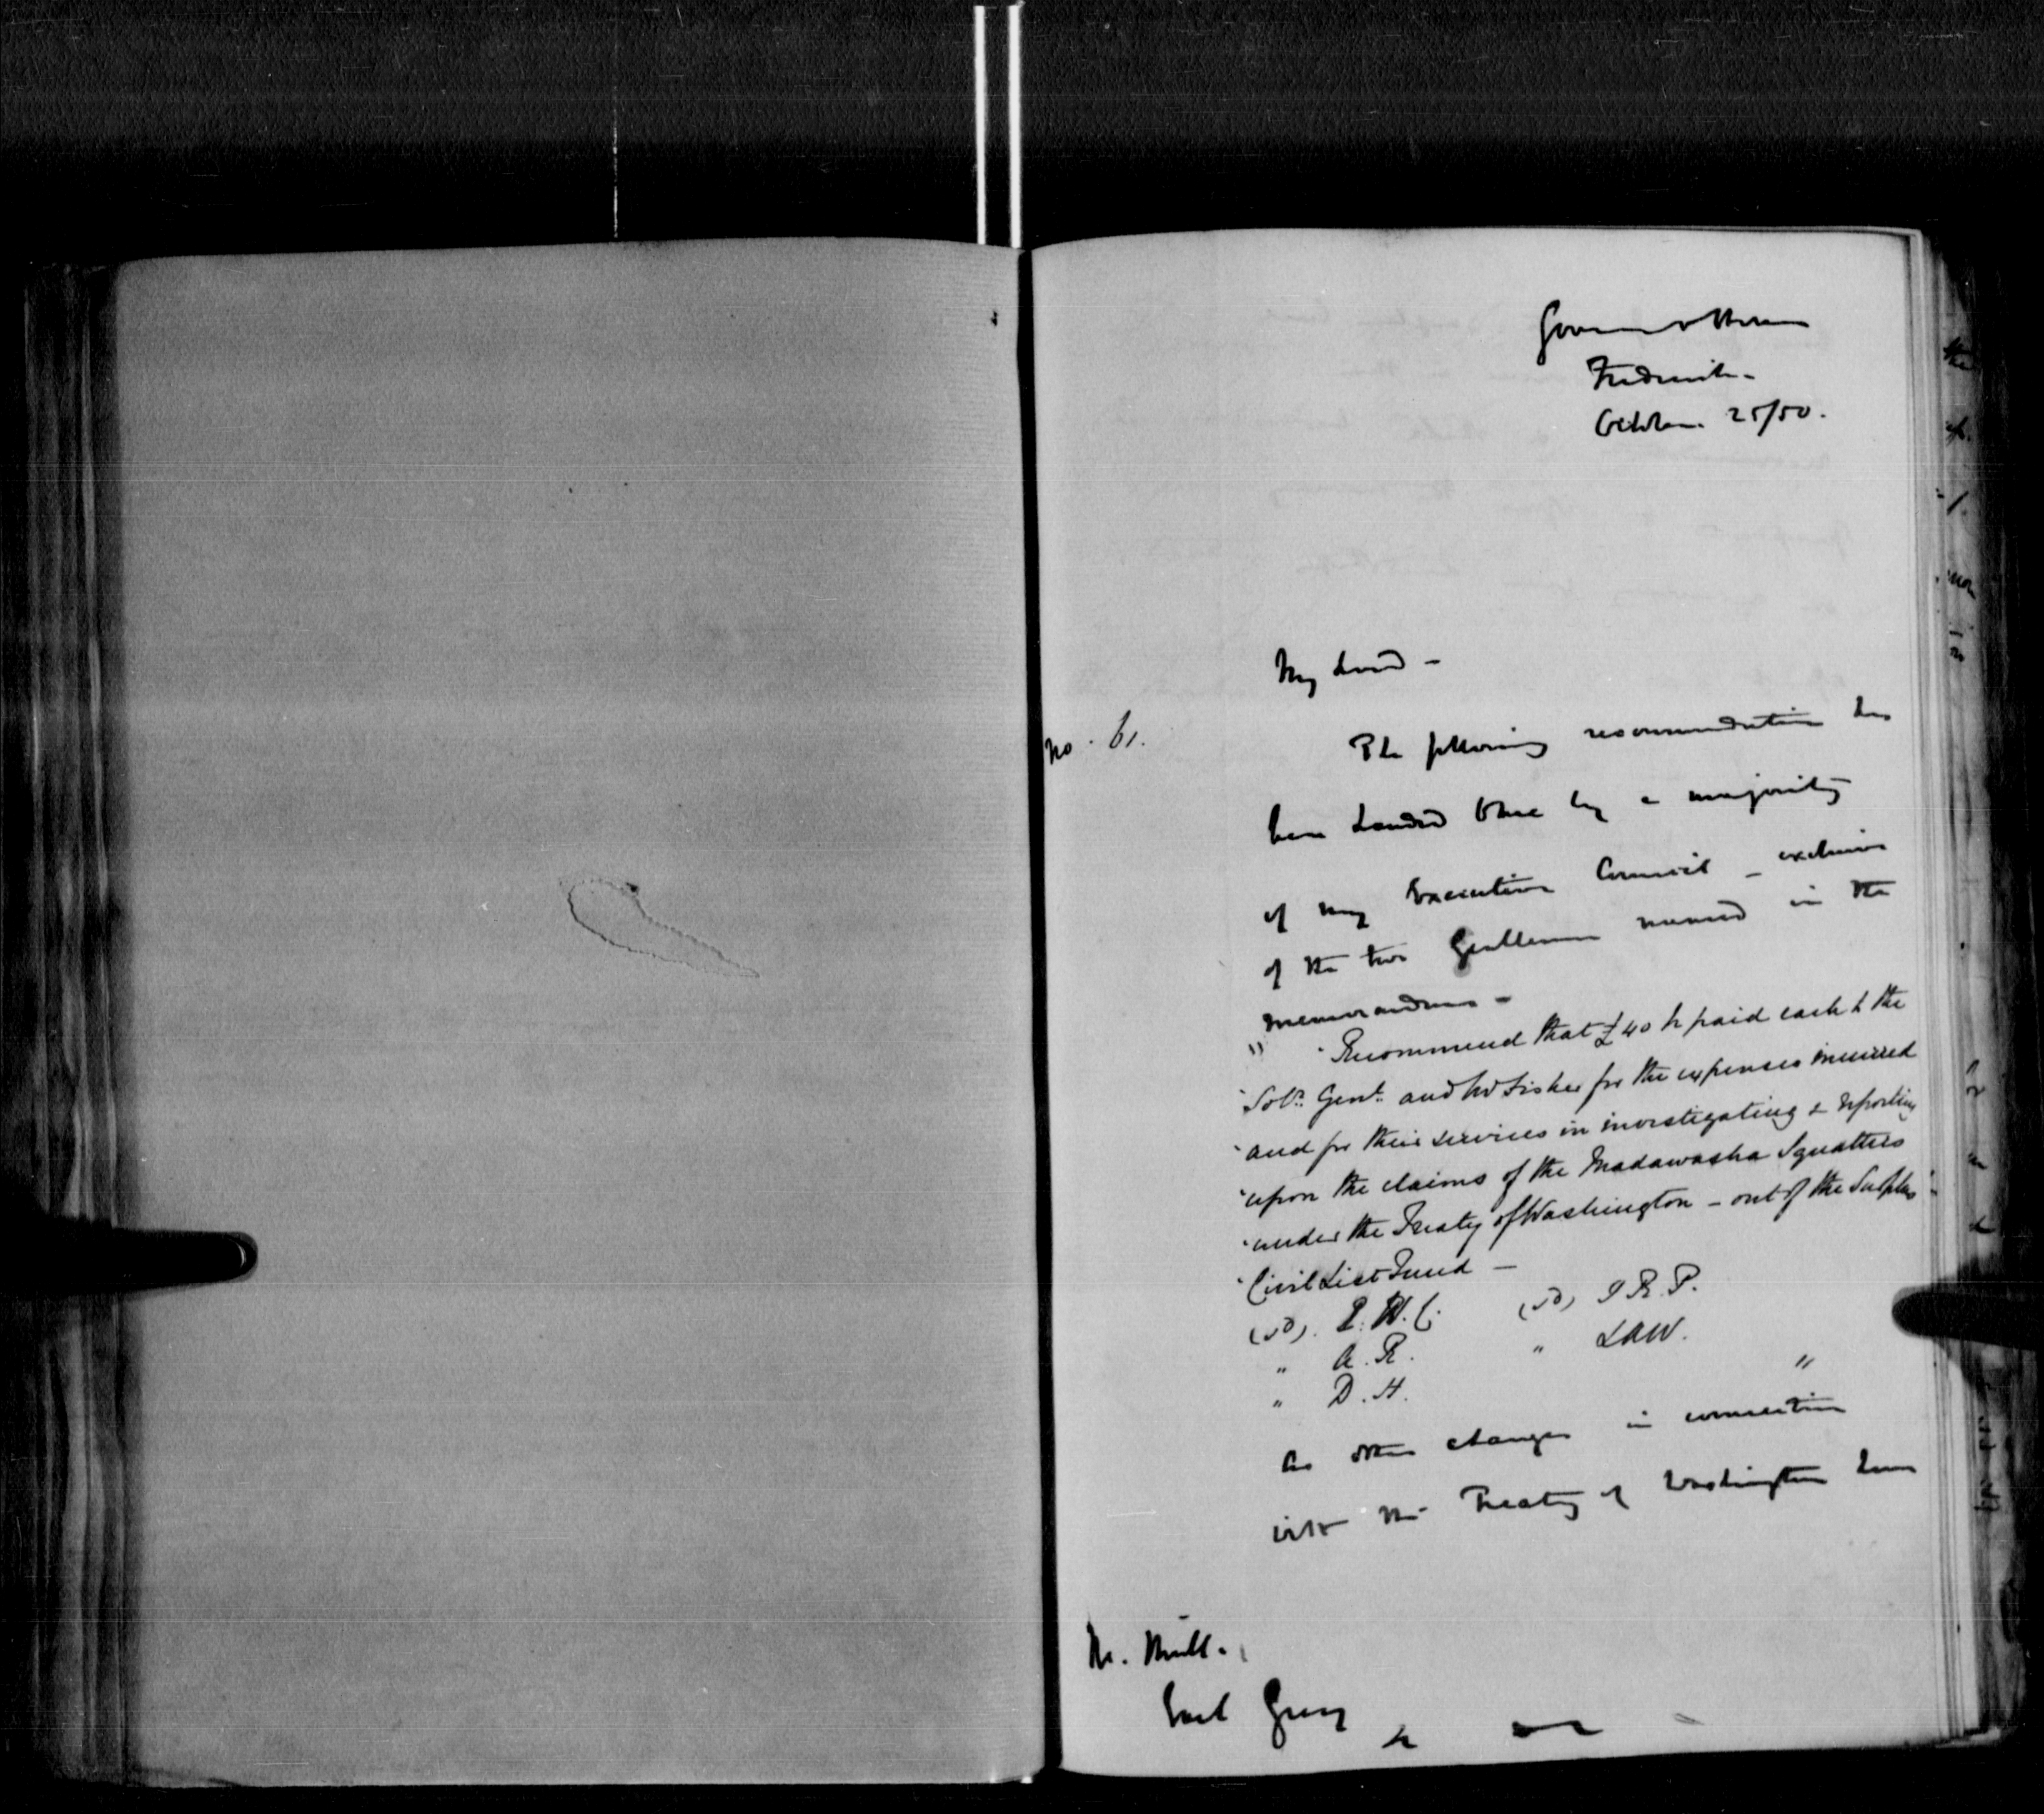 Government House
Fredericton
October 25/50.
My Lord -
No. 61.
The following recommendation has
been handed to me by a majority
of my Executive Council - exclusive
of the two Gentlemen named in the
memorandum -
" "Recommend that £40 be paid each to the
"Solr. Genl. and Mr Fisher for the expenses incurred
"and for their services in investigating & reporting
"upon the claims of the Madawaska Squatters
"under the Treaty of Washington - out of the Surplus
"Civil List Fund -
(sd). E. B. C. (sd) J. R. P.
" A. R. " L A W.
" D. H. "
As other charges in connection
with the Treaty of Washington have
Earl Grey